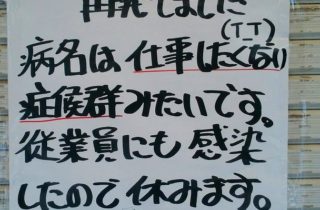 再発しました
(T_T)
病名は仕事したくない
症候群みたいです。
従業員にも感染
したので休みます。